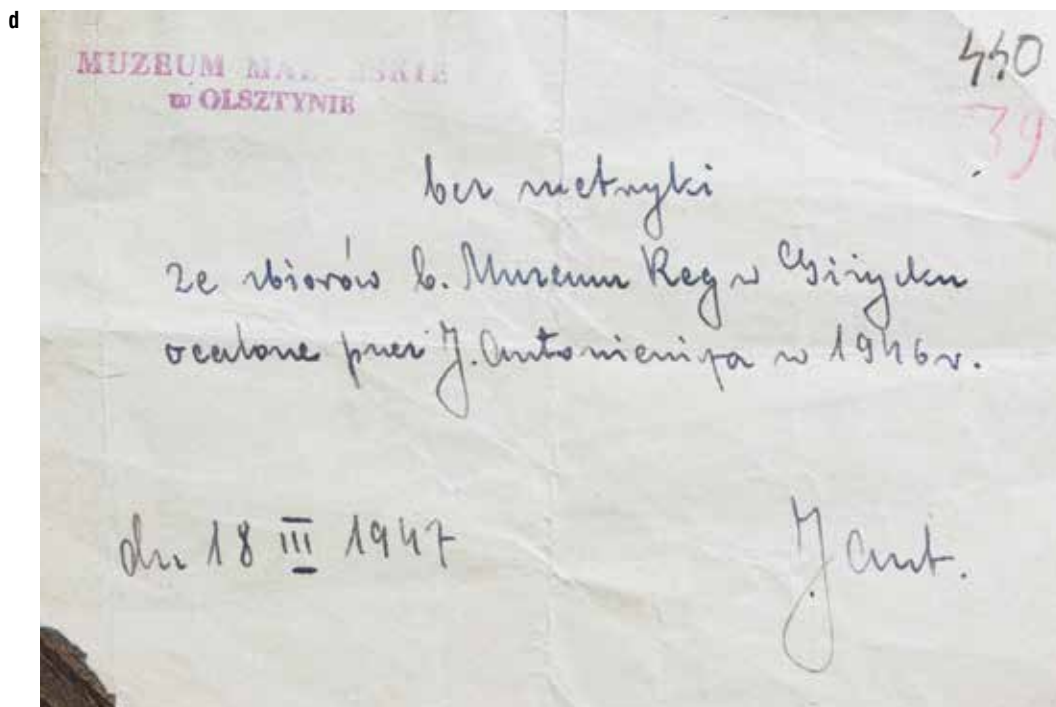 d
MUZEUM
w OLSZTYNIE
440
39
bez metryki
ze zbiorów b. Muzeum Reg w Giżycku
ocalone przez J. Antoniewicza w 1946 r.
dn 18 III 1947
J Ant.